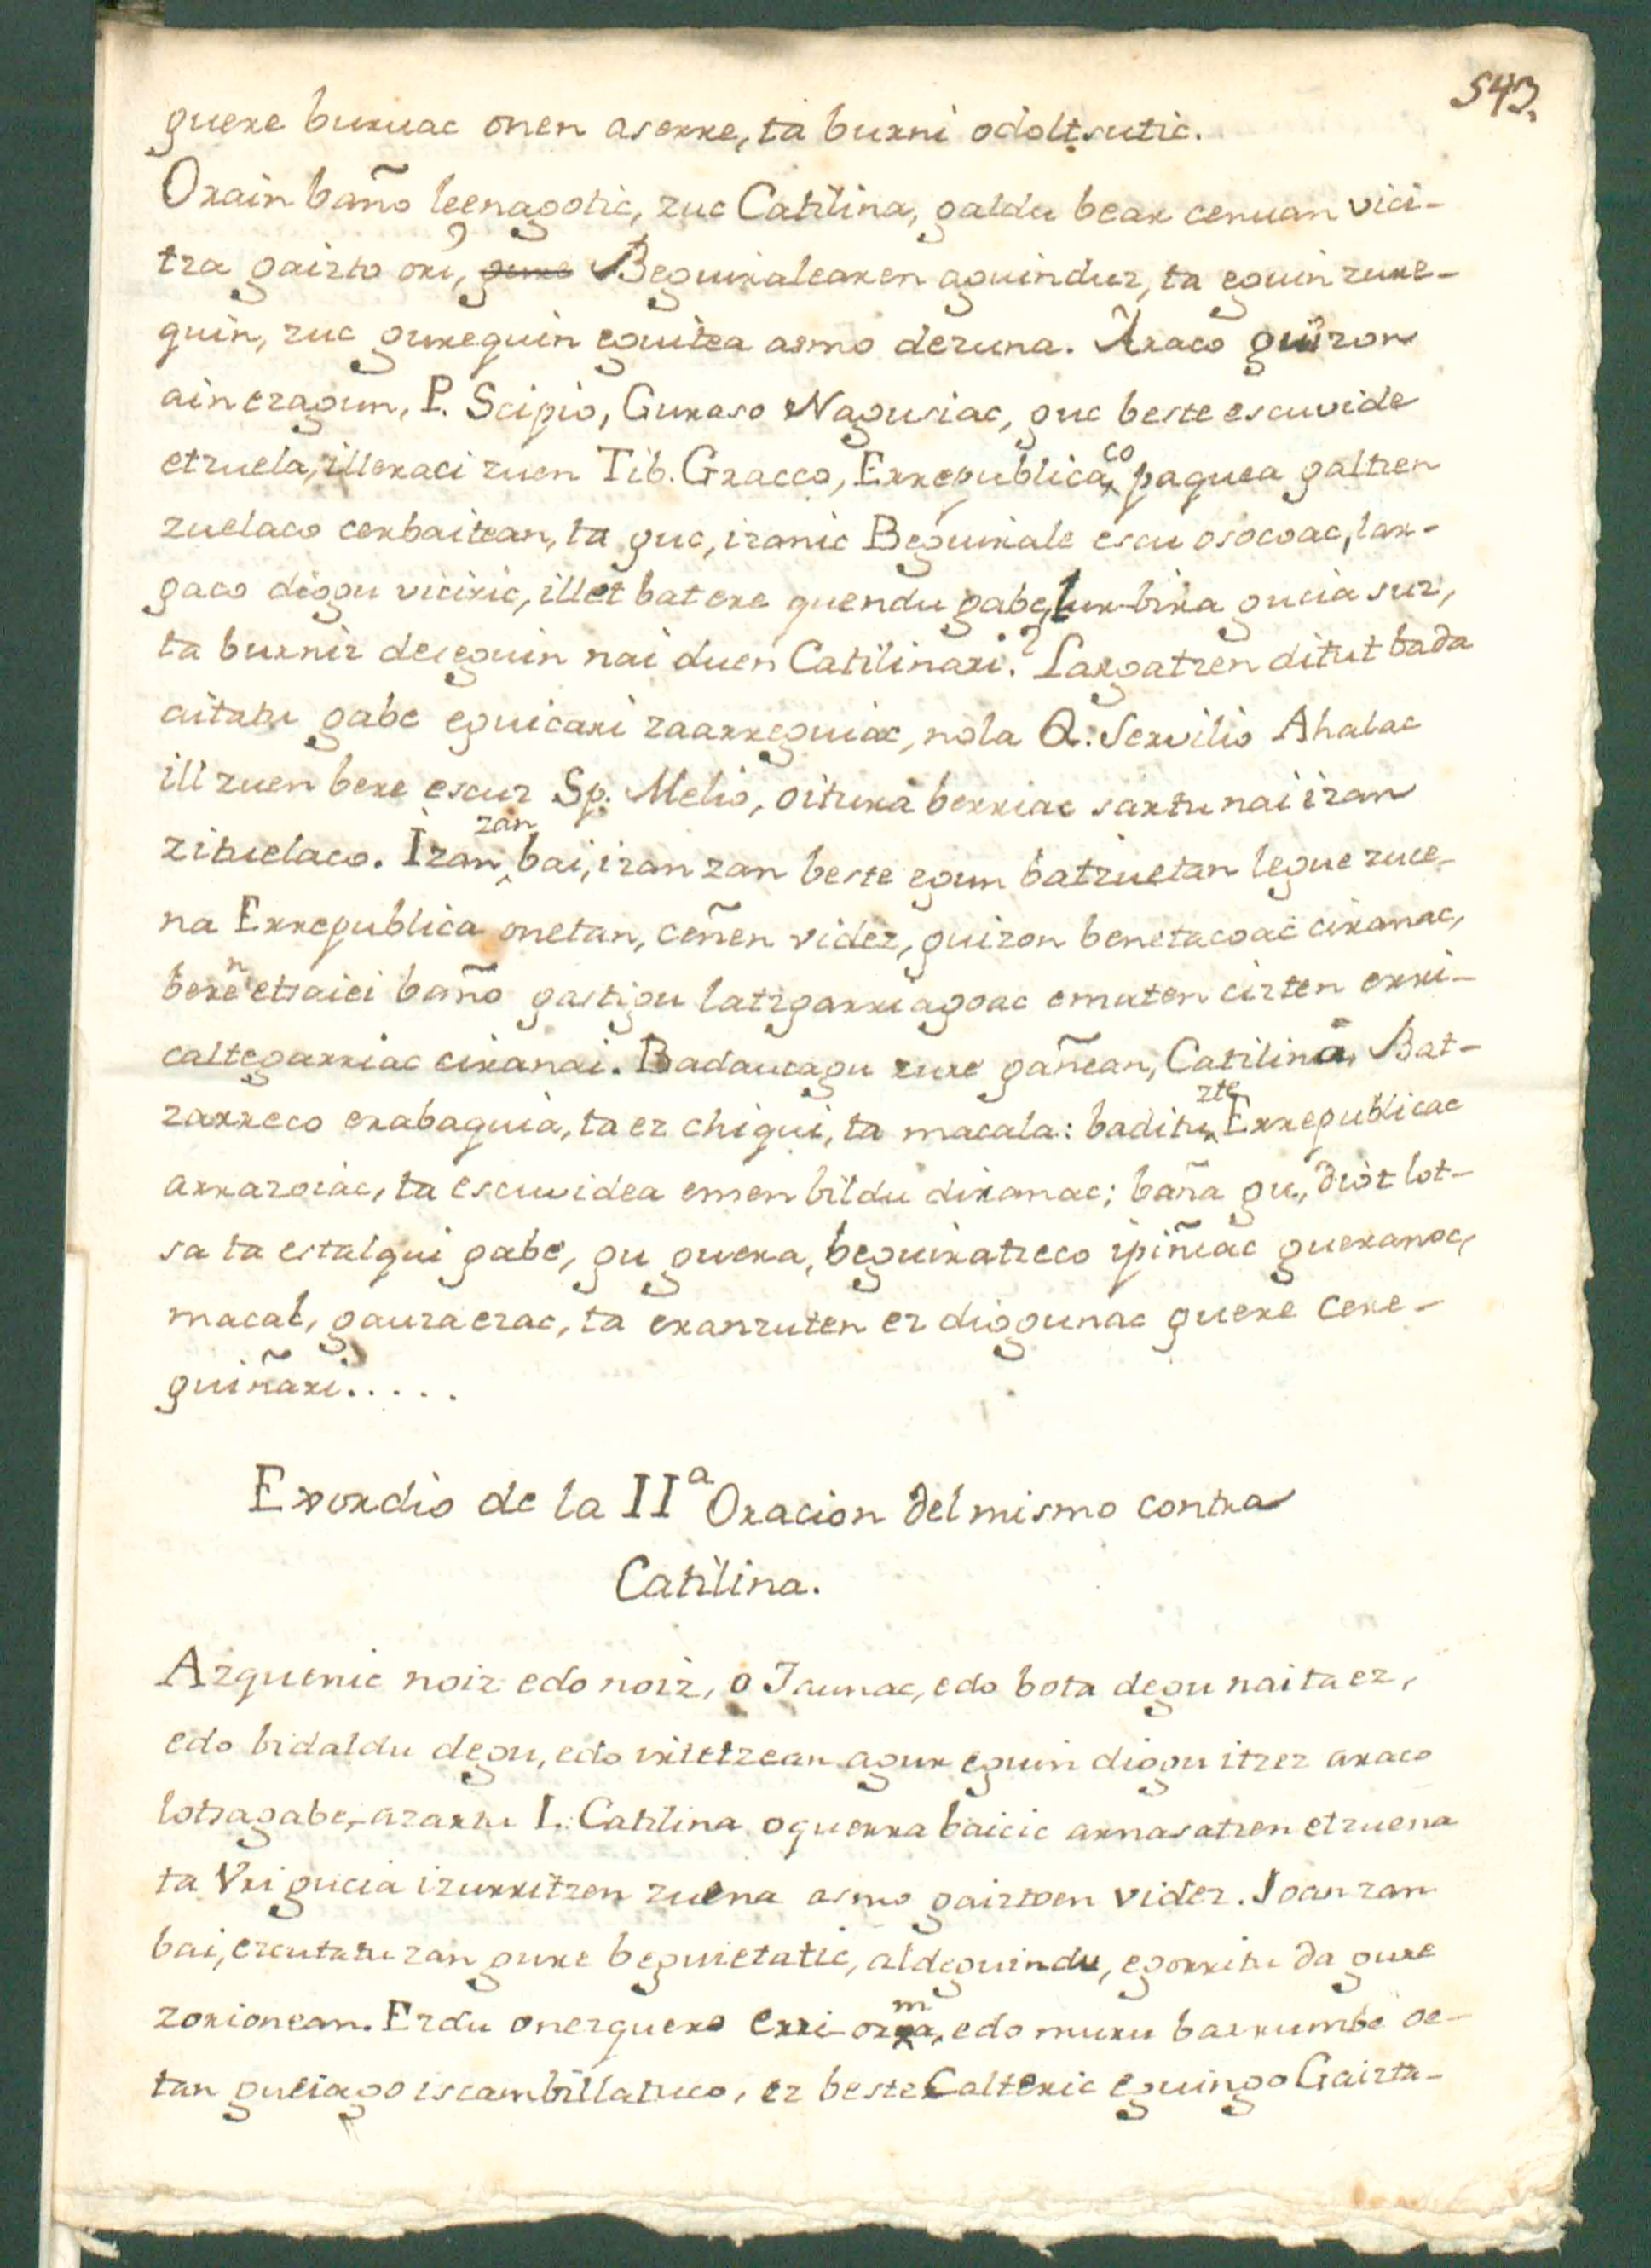 543.
guere buruac onen aserre, ta burni odoltsutic.
Orain baño leenagotic, zuc Catilina, galdu bear cenuan vici-
tza gaizto ori, gure Beguiralearen aguinduz, ta eguin zure-
quin, zuc gurequin eguitea asmo dezuna. Araco guizon
ain ezagun, P. Scipio, Guraso Nagusiac, guc beste escuvide
etzuela, illeraci zuen Tib. Gracco, Errepublicaco paquea galtzen
zuelaco cerbaitean, ta guc, izanic Beguirale escu osocoac, lar-
gaco diogu viciric, illet bat ere quendu gabe, lur-bira gucia suz,
ta burniz deseguin nai duen Catilinari? Largatzen ditut bada
aitatu gabe eguicari zaarreguiac, nola Q. Servilio Ahalac
ill zuen bere escuz Sp. Melio, oitura berriac sartu nai izan
zituelaco. Izan zan bai, izan zan beste egun batzuetan legue zuce-
na Errepublica onetan, ceñen videz, guizon benetacoac ciranac,
beren etsaiei baño gastigu latzgarriagoac ematen cizten erri-
caltegarriac ciranai. Badaucagu zure gañean, Catilina, Bat-
zarreco erabaquia, ta ez chiqui, ta macala: badituzte Errepublicac
arrazoiac, ta escuvidea emen bildu diranac; baña gu, diot lot-
sa ta estalqui gabe, gu guera, beguiratzeco ipiñiac gueranoc,
macal, gauzaezac, ta eranzuten ez diogunac guere cere-
guiñari.....
Exordio de la IIª Oracion del mismo contra
Catilina.
Azquenic noiz edo noiz, o Jaunac, edo bota degu naitaez,
edo bidaldu degu, edo irtetzean agur eguin diogu itzez araco
lotsagabe, azartu L. Catilina oguerra baicic arnasatzen etzuena
ta Vri gucia izurritzen zuena asmo gaiztoen videz. Joan zan
bai, ezcutatu zan gure beguietatic, aldeguindu, egorritu da gure
zorionean. Ezdu onezguero erri orma, edo muru barrumbe oe-
tan guciago iscambillatuco, ez beste Calteric eguingo Gaizta-